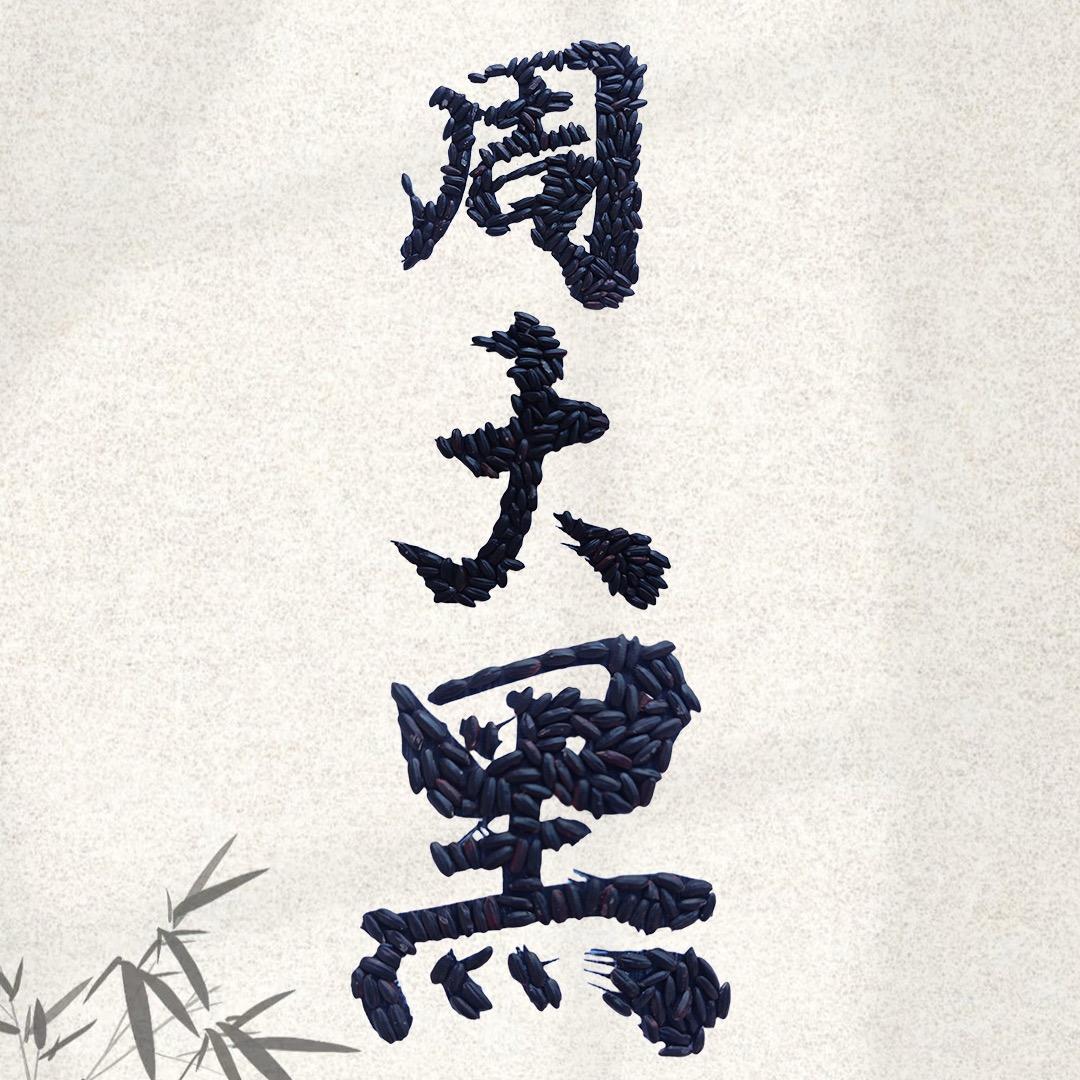 周大黑